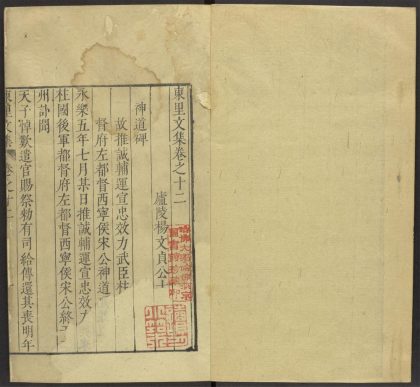 東里文集卷之十二
廬陵楊文貞公士
神道碑
故推誠輔運宣忠效力武臣柱
督府左都督西寧侯宋公神道
永樂五年七月某日推誠輔運宣忠效力
柱國後軍都督府左都督西寧侯宋公終
州訃聞
天子悼歎遣官賜祭勑有司給傳還其喪明年
東里文集 卷之十二